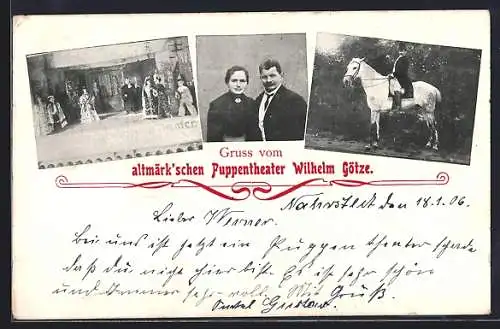 Gruss vom
altmärk'schen Puppentheater Wilhelm Götze.
Nahrstedt den 18.1.06.
Lieber Werner.
Bei uns ist jetzt ein Puppentheater schade
daß du nicht hier bist. Es ist sehr schön
und immer sehr voll. Mit Gruß.
Onkel Gustav.